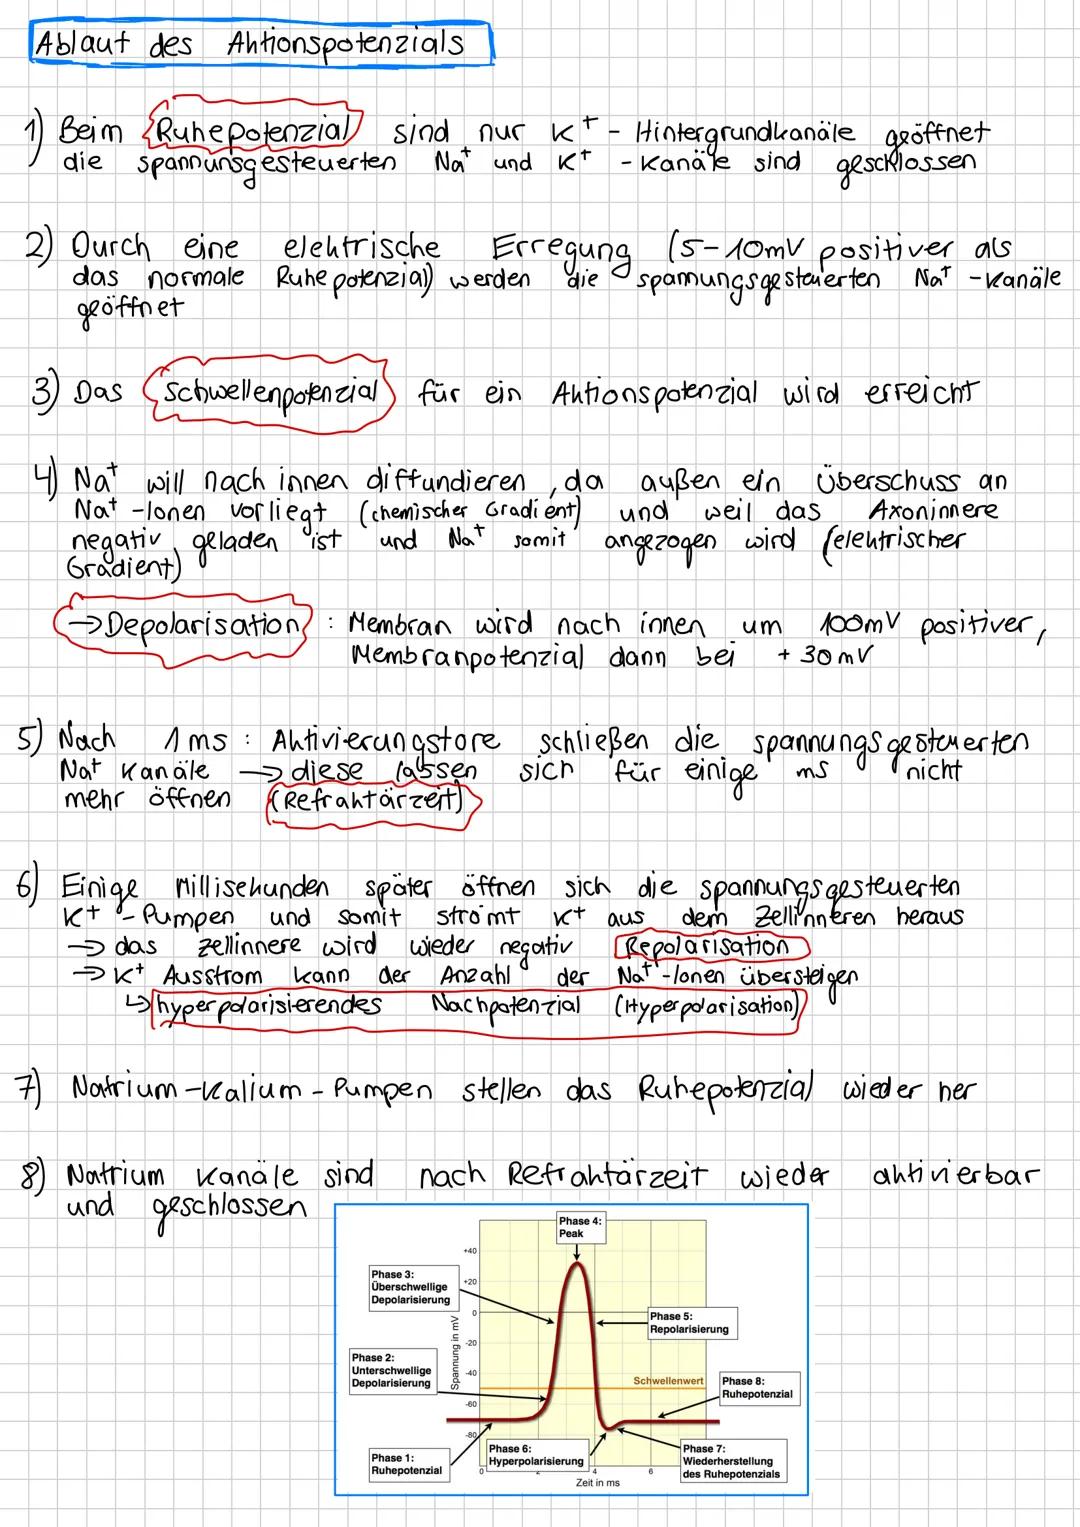 Ablauf des Aktionspotenzials
1) Beim Ruhepotenzial sind nur K+ - Hintergrundkanäle geöffnet
die spannunsgesteuerten Na+ und K+ - Kanäle sind geschlossen
2) Durch eine elektrische Erregung (5-10mV positiver als
das normale Ruhepotenzial) werden die spannungsgesteuerten Na+ -Kanäle
geöffnet
3) Das Schwellenpotenzial für ein Aktionspotenzial wird erreicht
4) Na+ will nach innen diffundieren, da außen ein Überschuss an
Na+ -Ionen vorliegt (chemischer Gradient) und weil das Axoninnere
negativ geladen ist und Na+ somit angezogen wird (elektrischer
Gradient)
→ Depolarisation : Membran wird nach innen um 100mV positiver,
Membranpotenzial dann bei + 30mV
5) Nach 1ms : Aktivierungstore schließen die spannungsgesteuerten
Na+ Kanäle → diese lassen sich für einige ms nicht
mehr öffnen (Refraktärzeit)
6) Einige Millisekunden später öffnen sich die spannungsgesteuerten
K+ - Pumpen und somit strömt K+ aus dem Zellinneren heraus
→ das Zellinnere wird wieder negativ Repolarisation
→ K+ Ausstrom kann der Anzahl der Na+ -Ionen übersteigen
↳ hyperpolarisierendes Nachpotenzial (Hyperpolarisation)
7) Natrium-Kalium-Pumpen stellen das Ruhepotenzial wieder her
8) Natrium Kanäle sind nach Refraktärzeit wieder aktivierbar
und geschlossen
Phase 4:
Peak
+40
Phase 3:
Überschwellige
Depolarisierung
+20
0
Phase 5:
Repolarisierung
-20
Spannung in mV
Phase 2:
Unterschwellige
Depolarisierung
-40
Schwellenwert
Phase 8:
Ruhepotenzial
-60
-80
Phase 1:
Ruhepotenzial
Phase 6:
Hyperpolarisierung
Phase 7:
Wiederherstellung
des Ruhepotenzials
0 2 4 6
Zeit in ms